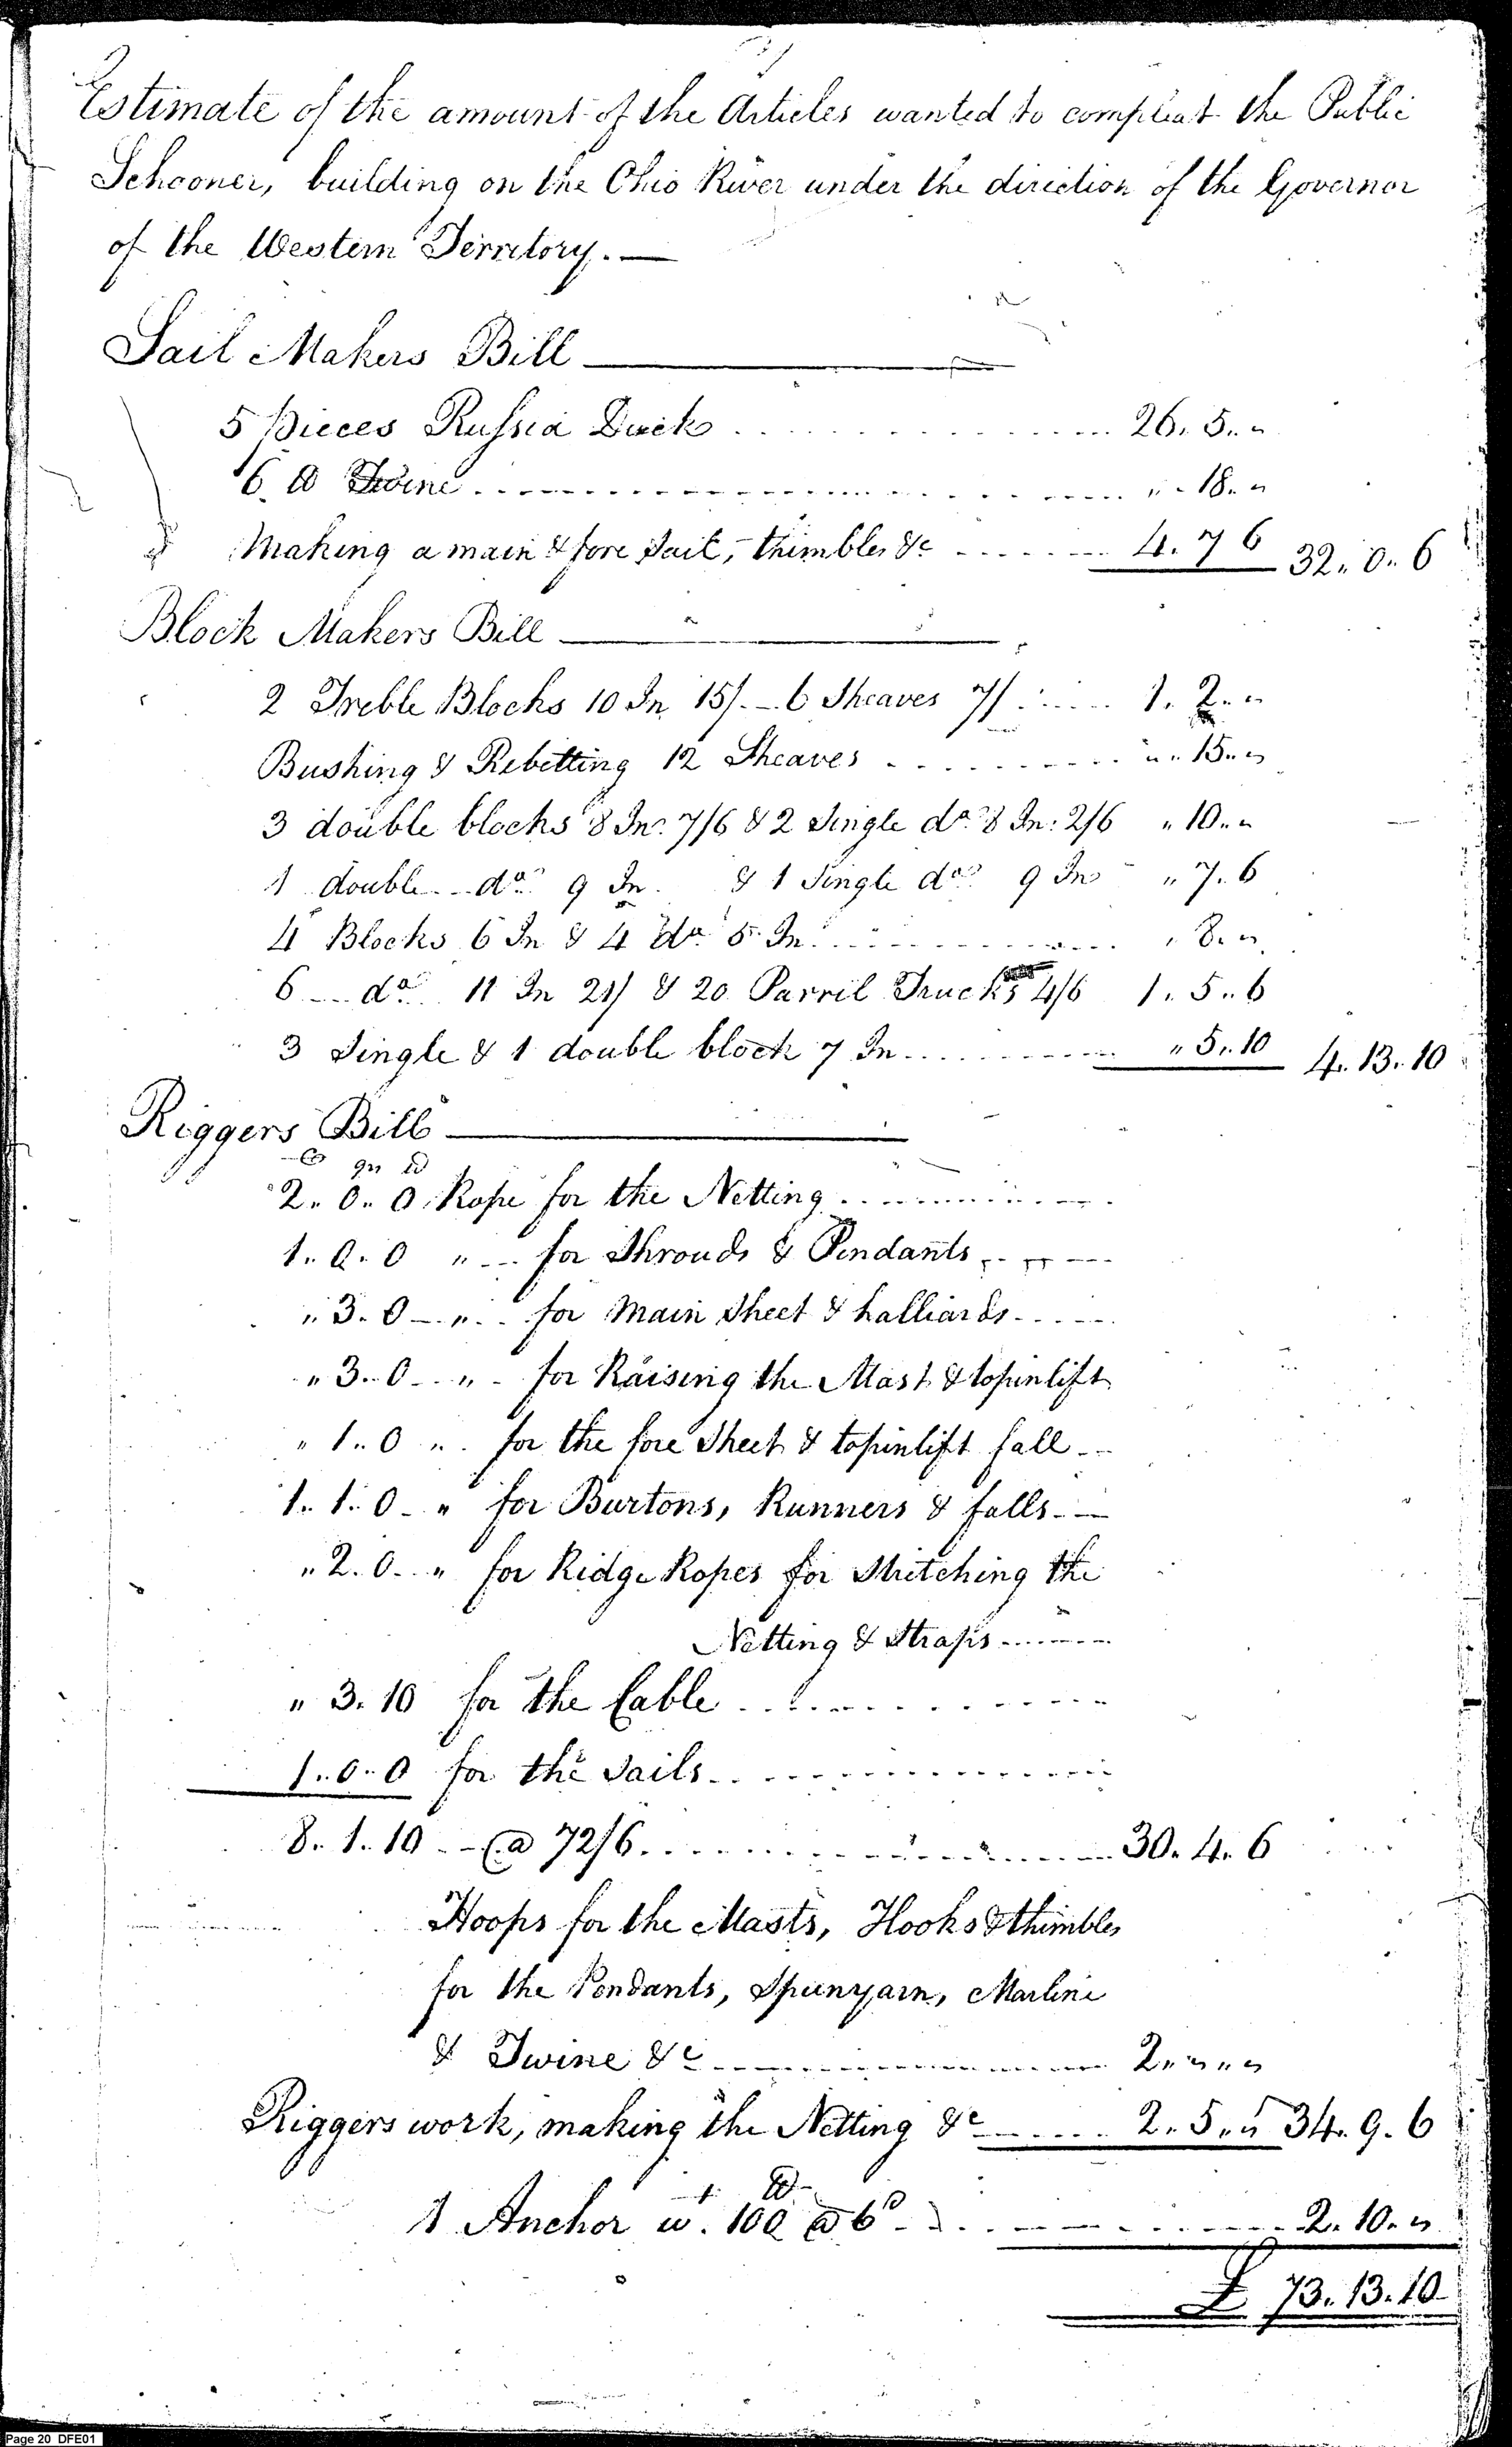 Estimate of the amount of the Articles wanted to compleat the Public
Schooner, building on the Ohio River under the direction of the Governor
of the Western Territory. —
Sail Makers Bill
5 pieces Russia Duck 26. 5. "
6 lb Twine " 18. "
Making a main & fore Sail, thimbles &c 4. 7 6 32. 0. 6
Block Makers Bill
2 Treble Blocks 10 In 15/. - 6 Sheaves 7/ 1. 2. "
Bushing & Rebetting 12 Sheaves " 15. "
3 double blocks 8 In. 7/6 & 2 Single do. 8 In: 2/6 " 10. "
1 double do. 9 In. & 1 Single do. 9 In " 7. 6
4 Blocks 6 In & 4 do 5 In. " 8. "
6 do. 11 In 21/ & 20 Parril Trucks 4/6 1. 5. 6
3 Single & 1 double block 7 In " 5. 10 4. 13. 10
Riggers Bill
C qrs lb
2. 0. 0 Rope for the Netting
1. 0. 0 " for Shrouds & Pendants
" 3. 0 " for Main Sheet & halliards
" 3. 0 " for Raising the Mast & topinlift
" 1. 0 " for the fore Sheet & topinlift fall
1. 1. 0 " for Burtons, Runners & falls
" 2. 0 " for Ridge Ropes for Stretching the
Netting & Straps
" 3. 10 for the Cable
1. 0. 0 for the Sails
8. 1. 10 @ 72/6 30. 4. 6
Hoops for the Masts, Hooks & thimbles
for the Pendants, Spunyarn, Marline
& Twine &c 2. ". "
Riggers work, making the Netting &c 2. 5. " 34. 9. 6
1 Anchor wt. 100 lb @ 6d 2. 10. "
£ 73. 13. 10
Page 20 DFE01